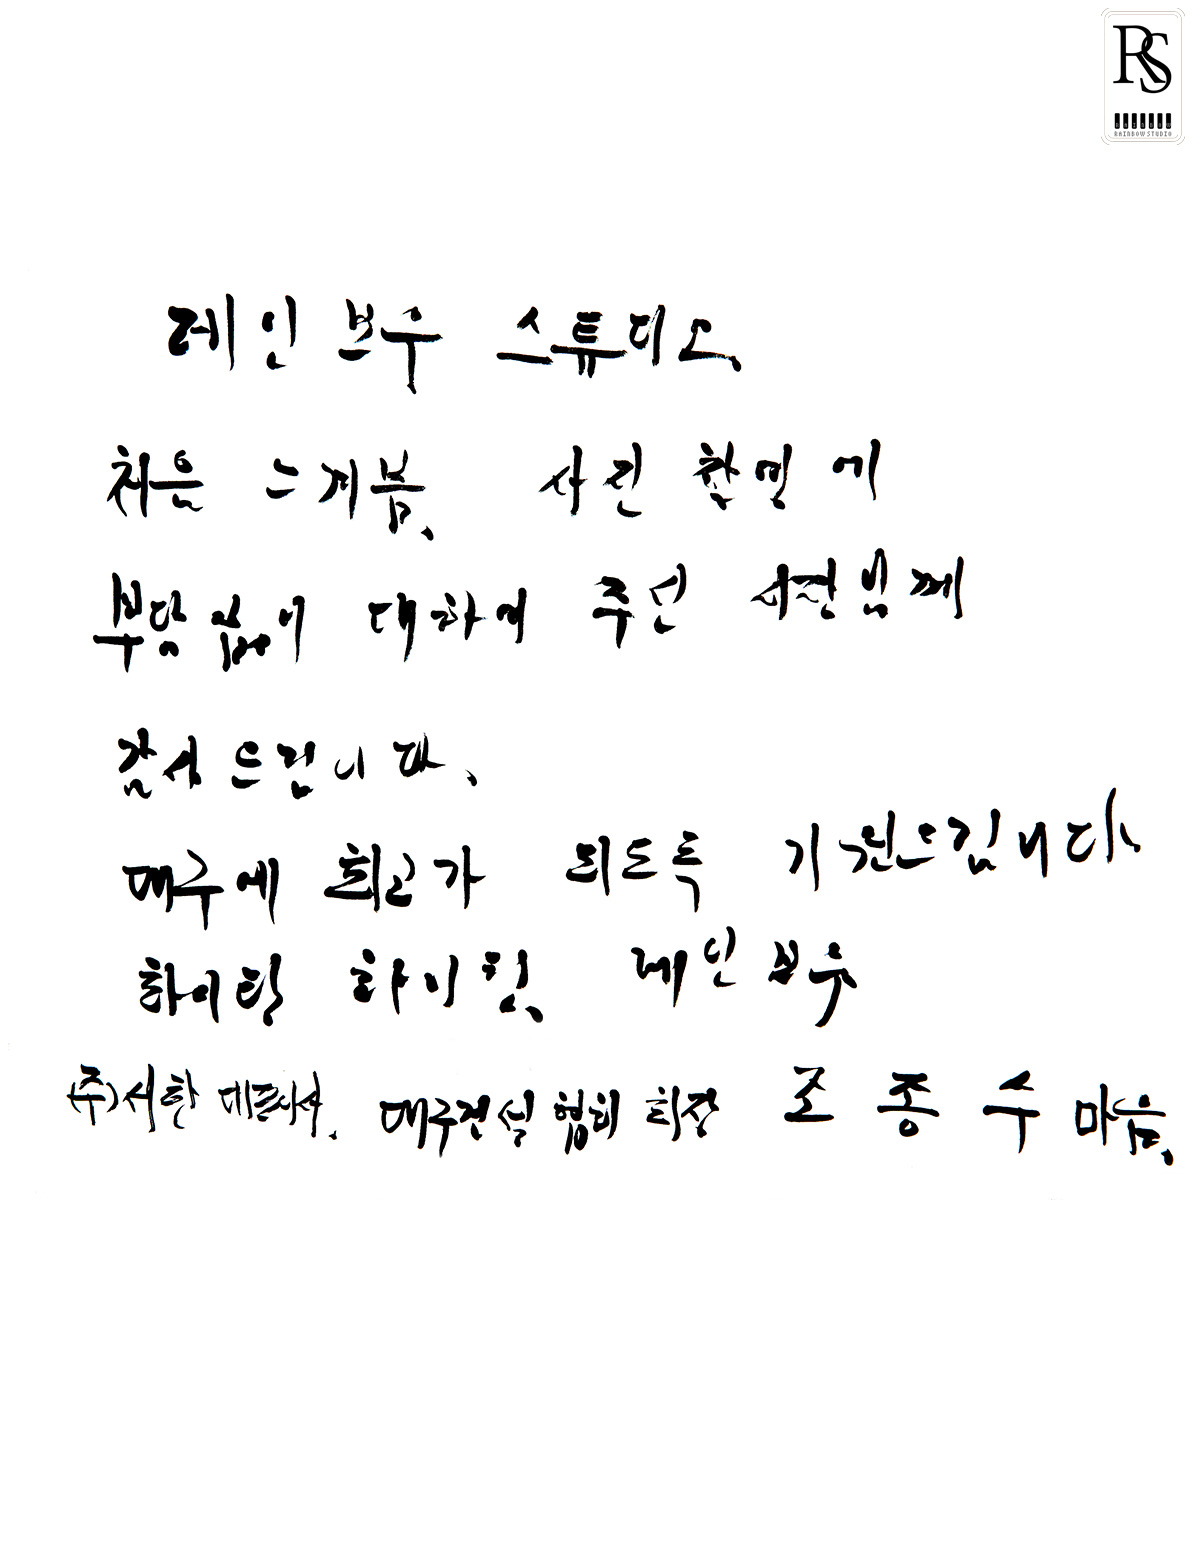 RS
RAINBOW STUDIO
레인보우 스튜디오.
처음 느껴봄. 사진 촬영에
부담없이 대하여 주신 사장님께
감사드립니다.
대구에 최고가 되도록 기원드립니다.
화이팅 화이팅. 레인보우
(주)서한 대표이사. 대구건설협회 회장 조종수 마음.